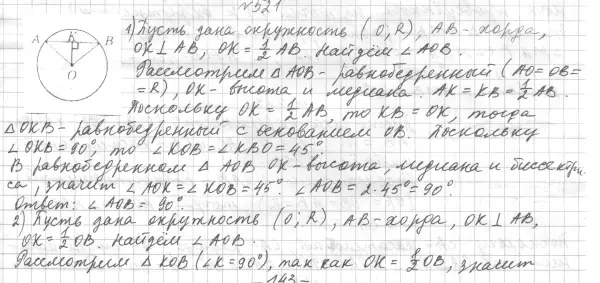 №521
A K B
O
1) Пусть дана окружность (O; R), AB - хорда,
OK ⊥ AB, OK = 1/2 AB. Найдём ∠AOB.
Рассмотрим △AOB - равнобедренный (AO = OB =
= R), OK - высота и медиана. AK = KB = 1/2 AB.
Поскольку OK = 1/2 AB, то KB = OK, тогда
△OKB - равнобедренный с основанием OB. Поскольку
∠OKB = 90°, то ∠KOB = ∠KBO = 45°.
В равнобедренном △AOB OK - высота, медиана и биссектри
са, значит ∠AOK = ∠KOB = 45° ∠AOB = 2·45° = 90°.
Ответ: ∠AOB = 90°.
2) Пусть дана окружность (O; R), AB - хорда, OK ⊥ AB,
OK = 1/2 OB. Найдём ∠AOB.
Рассмотрим △KOB (∠K = 90°), так как OK = 1/2 OB, значит
- 142 -